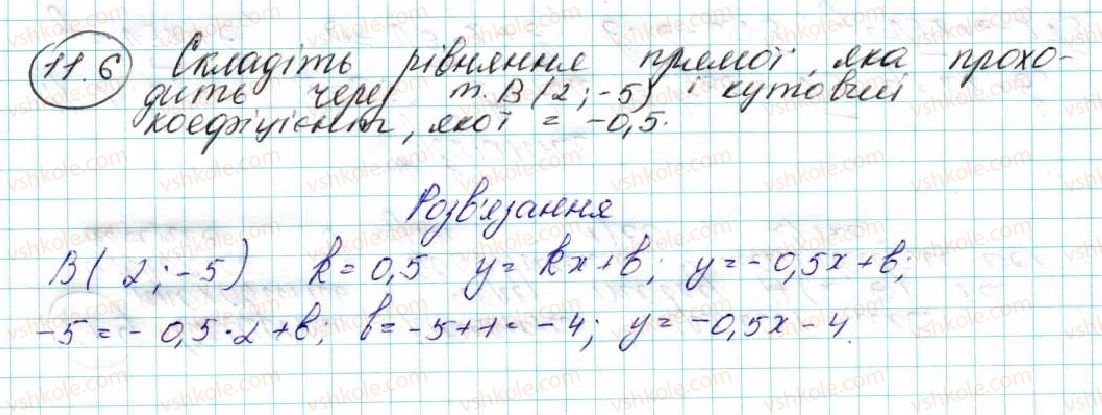 11.6 Складіть рівняння прямої, яка прохо-
дить через т. В (2; -5) і кутовий
коефіцієнт, якої = -0,5.
Розв'язання
В( 2; -5) k = 0,5 y = kx + b; y = -0,5x + b;
-5 = -0,5·2 + b; b = -5+1 = -4; y = -0,5x - 4.